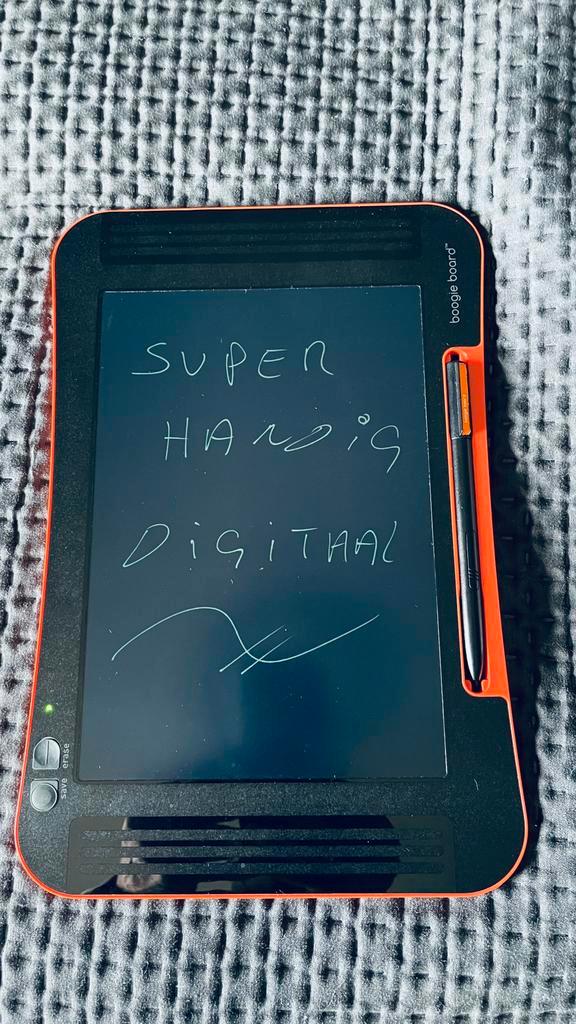 boogie board™
SUPER
HANDiG
DiGiTAAL
erase
save